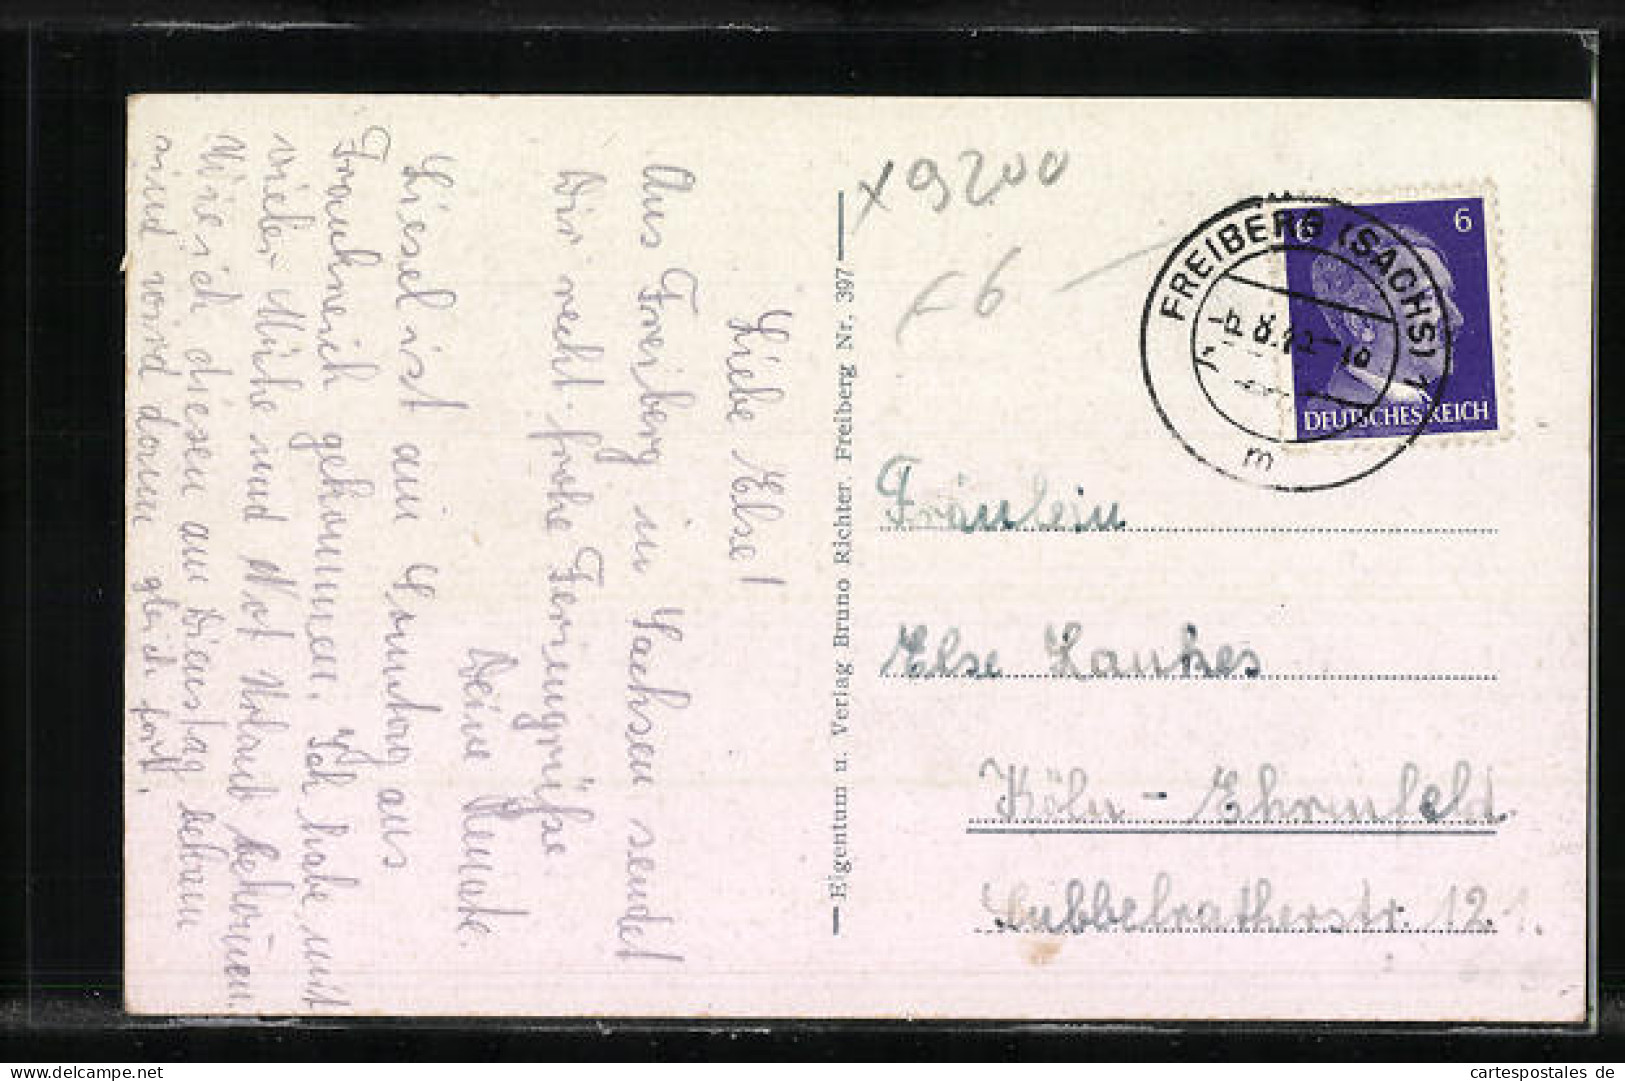 Liebe Else!
Aus Freiberg in Sachsen sendet
Dir recht frohe Feriengrüße
Deine Renate.
Liesel ist am Sonntag aus
Frankreich gekommen. Ich habe mit
vieler Mühe und Not Urlaub bekommen.
Wie ich diesen am Dienstag bekam
sind wir dann gleich fort.
— Eigentum u. Verlag Bruno Richter. Freiberg Nr, 397 —
x 9200
6
FREIBERG (SACHS) 1
m
6
DEUTSCHES REICH
Fräulein
Else
Köln - Ehrenfeld
Subbelratherstr. 121.
www.cartespostales.de